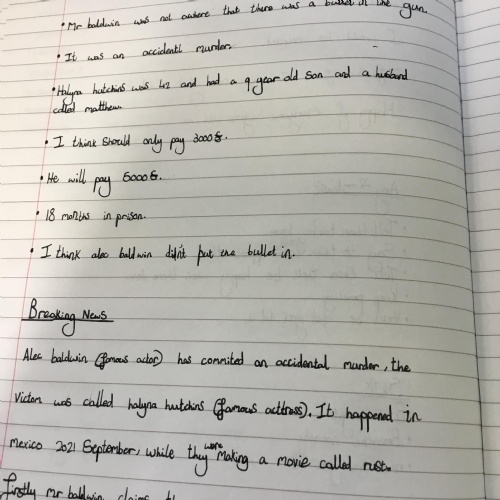 • Mr baldwin was not awhere that there was a bullet in the gun.
• It was an accidentl murder.
• Halyna hutchins was 42 and had a 9 year old son and a husband
called matthew.
• I think should only pay 3000$.
• He will pay 5000$.
• 18 months in prison.
• I think alec baldwin didn't put the bullet in.
Breaking News
Alec baldwin (famous actor) has commited an accidental murder, the
Victom was called halyna hutchins (famous acttress). It happened in
Mexico 2021 September, while they were making a movie called rust.
firstly mr baldwin claims